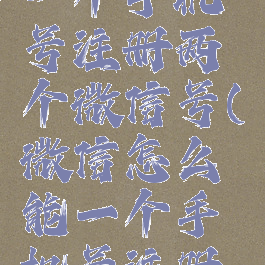 一个手机
号注册两
个微信号(
微信怎么
能一个手
机号注册